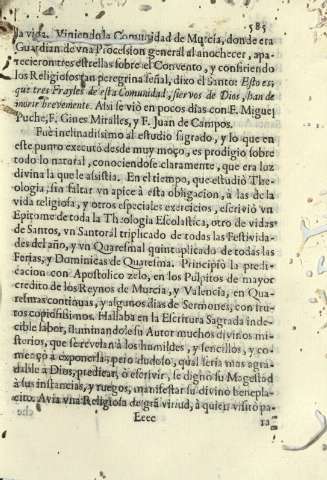 585
la vida. Viniendo la Comunidad de Murcia, donde era
Guardian de vna Procesion general al anochecer, apa-
recieron tres estrellas sobre el Convento, y confiriendo
los Religiosos tan peregrina señal, dixo el Santo: Esto es,
que tres Frayles de esta Comunidad, siervos de Dios, han de
morir brevemente. Asi se viò en pocos dias con F. Miguel
Puche, F. Gines Miralles, y F. Juan de Campos.
Fuè inclinadisimo al estudio sagrado, y lo que en
este punto executò desde muy moço, es prodigio sobre
todo lo natural, conociendose claramente, que era luz
divina la que le asistia. En el tiempo, que estudiò The-
ologia, sin faltar vn apice à esta obligacion, à las de la
vida religiosa, y otros especiales exercicios, escriviò vn
Epitome de toda la Theologia Escolastica, otro de vidas
de Santos, vn Santoral triplicado de todas las Festivida-
des del año, y vn Quaresmal quintuplicado de todas las
Ferias, y Dominicas de Quaresma. Principiò la predi-
cacion con Apostolico zelo, en los Pulpitos de mayor
credito de los Reynos de Murcia, y Valencia, en Qua-
resmas continuas, y algunos dias de Sermones, con fru-
tos copiosisimos. Hallaba en la Escritura Sagrada inde-
cible labor, iluminandole su Autor muchos divinos mi-
sterios, que se revelan à los humildes, y sencillos, y co-
mençò à exponerla; pero dudoso, qual seria mas agra-
dable à Dios, predicar, ò escrivir, se dignò su Magestad
à sus instancias, y ruegos, manifestar su divino benepla-
cito. Avia vna Religiosa de grã virtud, à quien visitò pa-
Eeee
ra